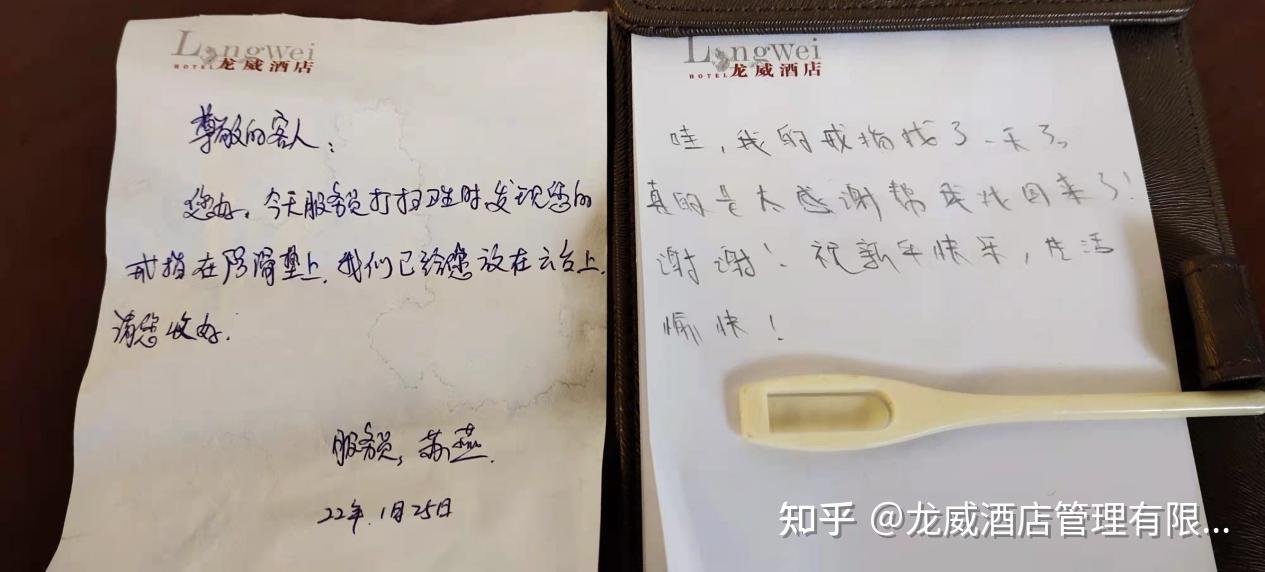 LongWei
HOTEL 龙威酒店
尊敬的客人：
您好。今天服务员打扫卫生时发现您的
戒指在防滑垫上，我们已给您放在云台上，
请您收好.
服务员，苏燕.
22年.1月25日
LongWei
HOTEL 龙威酒店
哇，我的戒指找了一天了。
真的是太感谢帮我找回来了！
谢谢！祝新年快乐，生活
愉快！
知乎 @龙威酒店管理有限...